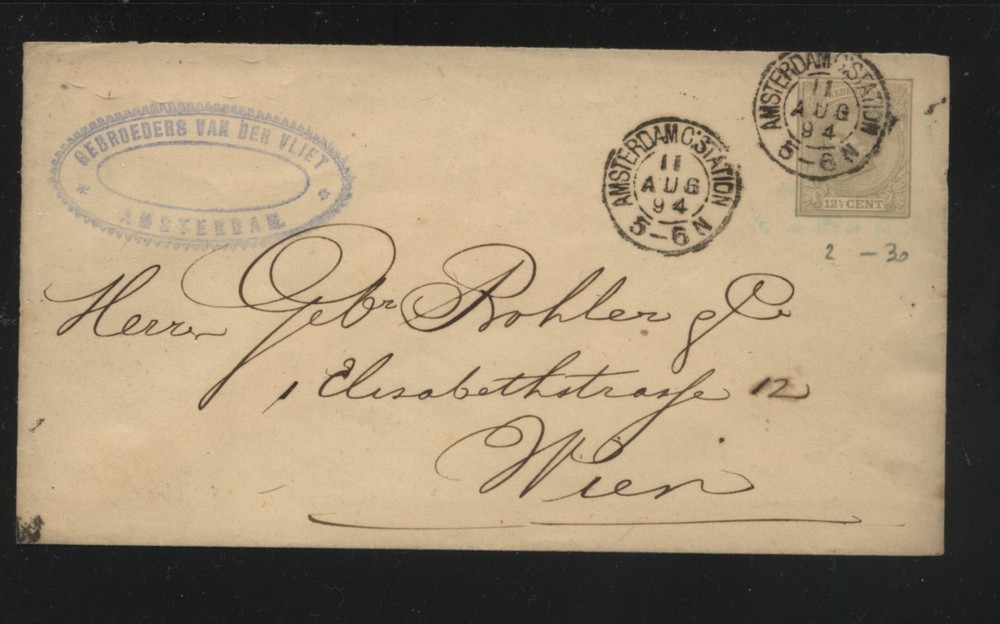 GEBROEDERS VAN DER VLIET
AMSTERDAM
AMSTERDAM C.STATION
11
AUG
94
5-6 N
AMSTERDAM C.STATION
11
AUG
94
5-6 N
12½ CENT
2 - 30
Herren Gebr Bohler & Co
Elisabethstrasse 12
Wien